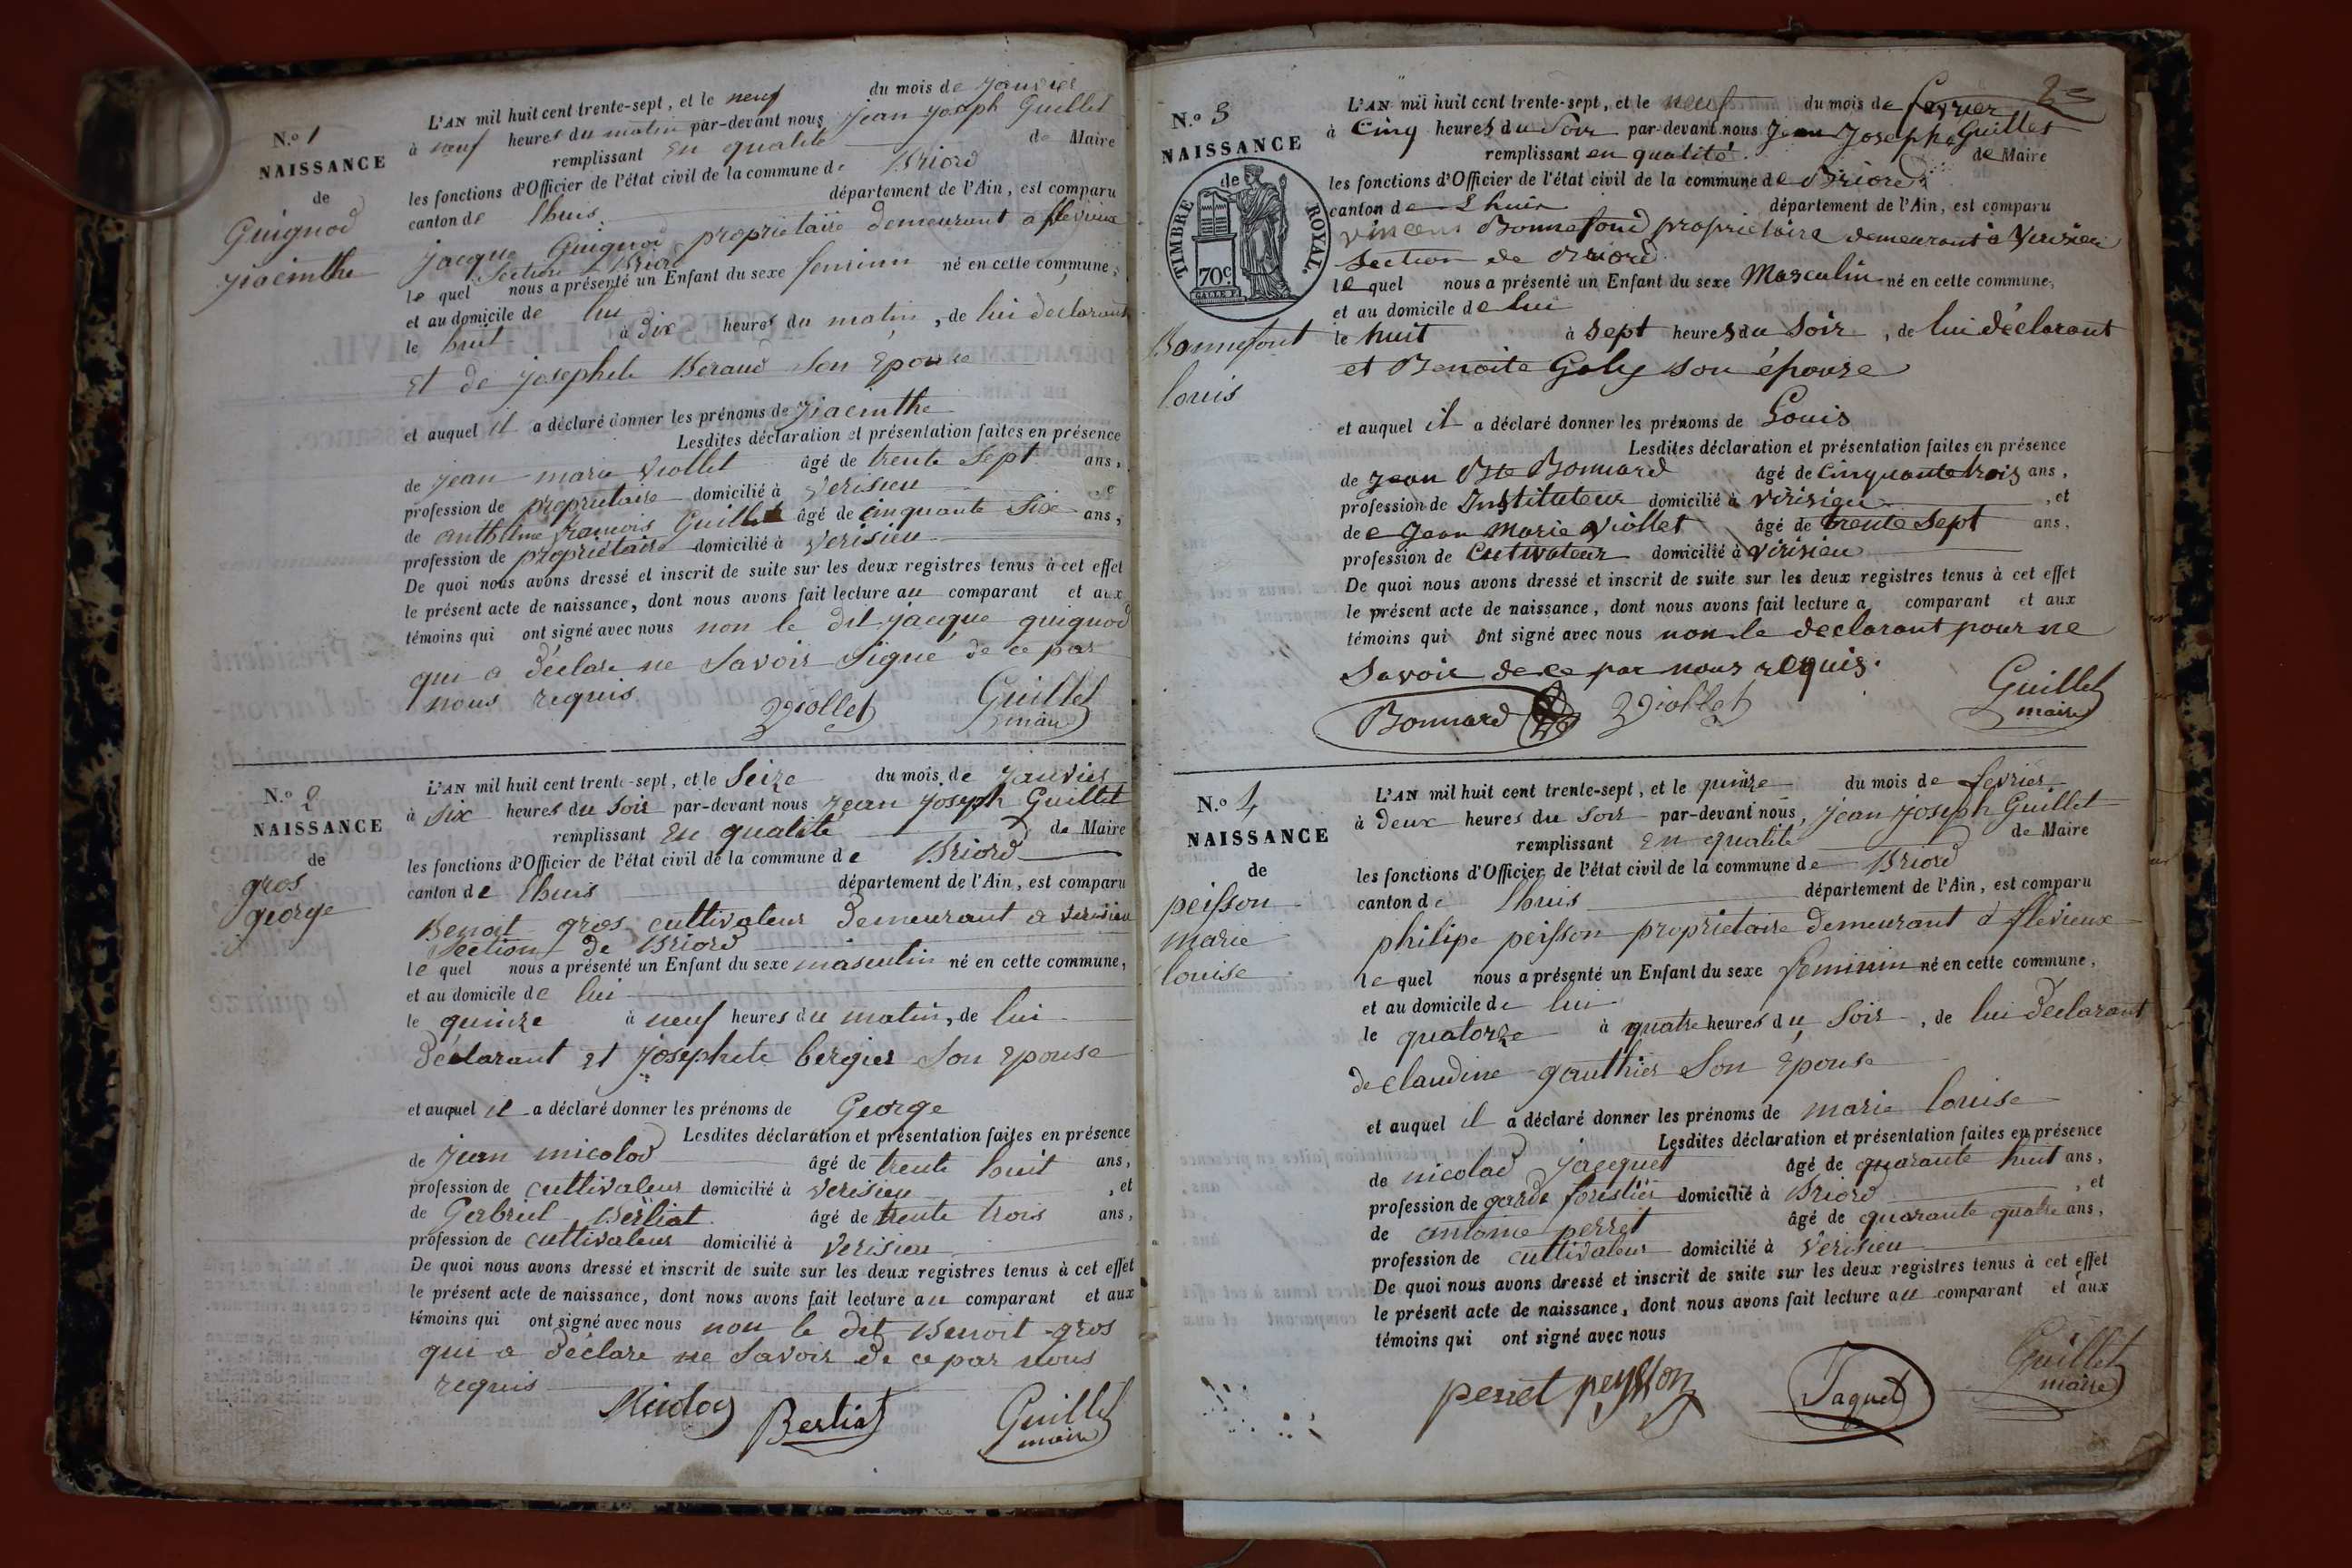 N.o 1
NAISSANCE
de
Guignod
jiacinthe
L'AN mil huit cent trente-sept, et le neuf du mois de janvier
à neuf heures du matin par-devant nous jean joseph Guillet
remplissant en qualité de Maire
les fonctions d'Officier de l'état civil de la commune de Briord
canton de lhuis département de l'Ain, est comparu
jacque Guignod propriétaire demeurant a flevieux
section de Briord
le quel nous a présenté un Enfant du sexe feminin né en cette commune,
et au domicile de lui
le huit à dix heures du matin, de lui declarant
et de josephete Beraud son epouse
et auquel il a déclaré donner les prénoms de jiacinthe
Lesdites déclaration et présentation faites en présence
de jean marie Viollet âgé de trente sept ans,
profession de propriétaire domicilié à verisieu et
de anthelme françois Guillet âgé de cinquante six ans,
profession de propriétaire domicilié à verisieu
De quoi nous avons dressé et inscrit de suite sur les deux registres tenus à cet effet
le présent acte de naissance, dont nous avons fait lecture au comparant et aux
témoins qui ont signé avec nous non le dit jacque guignod
qui a déclaré ne savoir signé de ce par
nous requis
Viollet Guillet
maire
N.o 2
NAISSANCE
de
gros
george
L'AN mil huit cent trente-sept, et le Seize du mois de janvier
à six heures du soir par-devant nous jean joseph Guillet
remplissant en qualité de Maire
les fonctions d'Officier de l'état civil de la commune de Briord
canton de lhuis département de l'Ain, est comparu
Benoit gros cultivateur demeurant a verisieu
section de Briord
le quel nous a présenté un Enfant du sexe masculin né en cette commune,
et au domicile de lui
le quinze à neuf heures du matin, de lui
déclarant et josephete bergier son epouse
et auquel il a déclaré donner les prénoms de George
Lesdites déclaration et présentation faites en présence
de jean micolod âgé de trente huit ans,
profession de cultivateur domicilié à verisieu, et
de Gabriel Berliat âgé de trente trois ans,
profession de cultivateur domicilié à verisieu
De quoi nous avons dressé et inscrit de suite sur les deux registres tenus à cet effet
le présent acte de naissance, dont nous avons fait lecture au comparant et aux
témoins qui ont signé avec nous non le dit Benoit gros
qui a déclaré ne savoir de ce par nous
requis
Berliat Guillet
maire
2
N.o 3
NAISSANCE
de
TIMBRE ROYAL.
70c.
Bonnefont
louis
L'AN mil huit cent trente-sept, et le neuf du mois de fevrier
à Cinq heures du Soir par-devant nous Jean Joseph Guillet
remplissant en qualité de Maire
les fonctions d'Officier de l'état civil de la commune de Briord
canton de Lhuis département de l'Ain, est comparu
vincent Bonnefond propriétaire demeurant à Verisieu
section de Briord
le quel nous a présenté un Enfant du sexe Masculin né en cette commune,
et au domicile de lui
le huit à sept heures du soir, de lui déclarant
et Benoite Goly son épouse
et auquel il a déclaré donner les prénoms de Louis
Lesdites déclaration et présentation faites en présence
de Jean Bte Bonnard âgé de Cinquante trois ans,
profession de Instituteur domicilié à virisieu, et
de e Jean Marie Viollet âgé de trente sept ans,
profession de Cutivateur domicilié à virisieu
De quoi nous avons dressé et inscrit de suite sur les deux registres tenus à cet effet
le présent acte de naissance, dont nous avons fait lecture a comparant et aux
témoins qui ont signé avec nous non le declarant pour ne
Savoir de ce par nous requis.
Bonnard Viollet Guillet
maire
N.o 4
NAISSANCE
de
peisson
marie
louise
L'AN mil huit cent trente-sept, et le quinze du mois de fevrier
à deux heures du soir par-devant nous, jean joseph Guillet
remplissant en qualité de Maire
les fonctions d'Officier de l'état civil de la commune de Briord
canton de lhuis département de l'Ain, est comparu
philipe peisson propriétaire demeurant à flevieux
le quel nous a présenté un Enfant du sexe feminin né en cette commune,
et au domicile de lui
le quatorze à quatre heures du soir, de lui déclarant
de claudine gauthier son epouse
et auquel il a déclaré donner les prénoms de marie louise
Lesdites déclaration et présentation faites en présence
de nicolad jacquet âgé de quarante huit ans,
profession de garde forestier domicilié à Briord, et
de antoine perret âgé de quarante quatre ans,
profession de cultivateur domicilié à verisieu
De quoi nous avons dressé et inscrit de suite sur les deux registres tenus à cet effet
le présent acte de naissance, dont nous avons fait lecture au comparant et aux
témoins qui ont signé avec nous
perret peysson Jaquet Guillet
maire